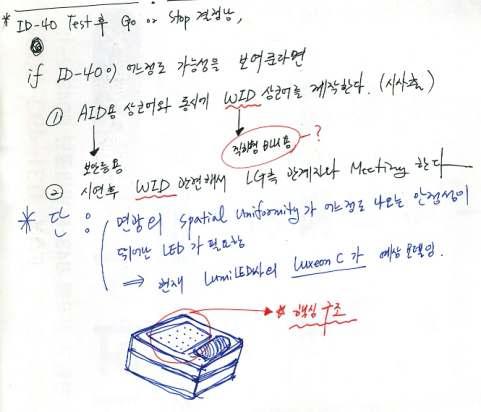 * ID-40 Test후 Go or Stop 결정남,
if ID-40이 어느정도 가능성을 보여준다면
① AID용 상근어와 동시에 WID 상근어를 제작한다. (시사호)
보안등용
직하형 BLU용 ?
② 시연후 WID 관련해서 LG측 관계자와 Meeting 한다
* 단, : 면광의 spatial uniformity가 어느정도 나오는 안정성이
뛰어난 LED가 필요함
⇒ 현재 LumiLED사의 Luxeon C가 예상 모델임.
* 핵심 구조